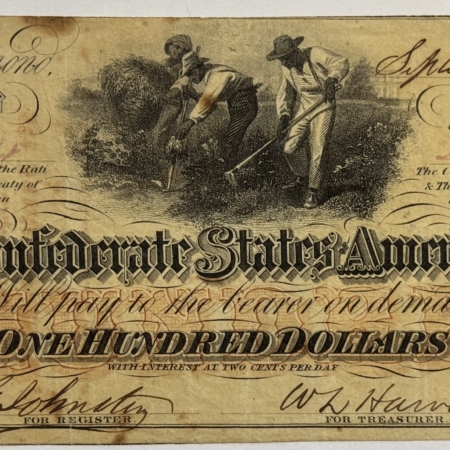 Septe
the Rati The C
eaty of & Th
en
nfederate States Ameri
Will pay to the bearer on dema
ONE HUNDRED DOLLARS
WITH INTEREST AT TWO CENTS PER DAY
Johnston
FOR REGISTER. FOR TREASURER